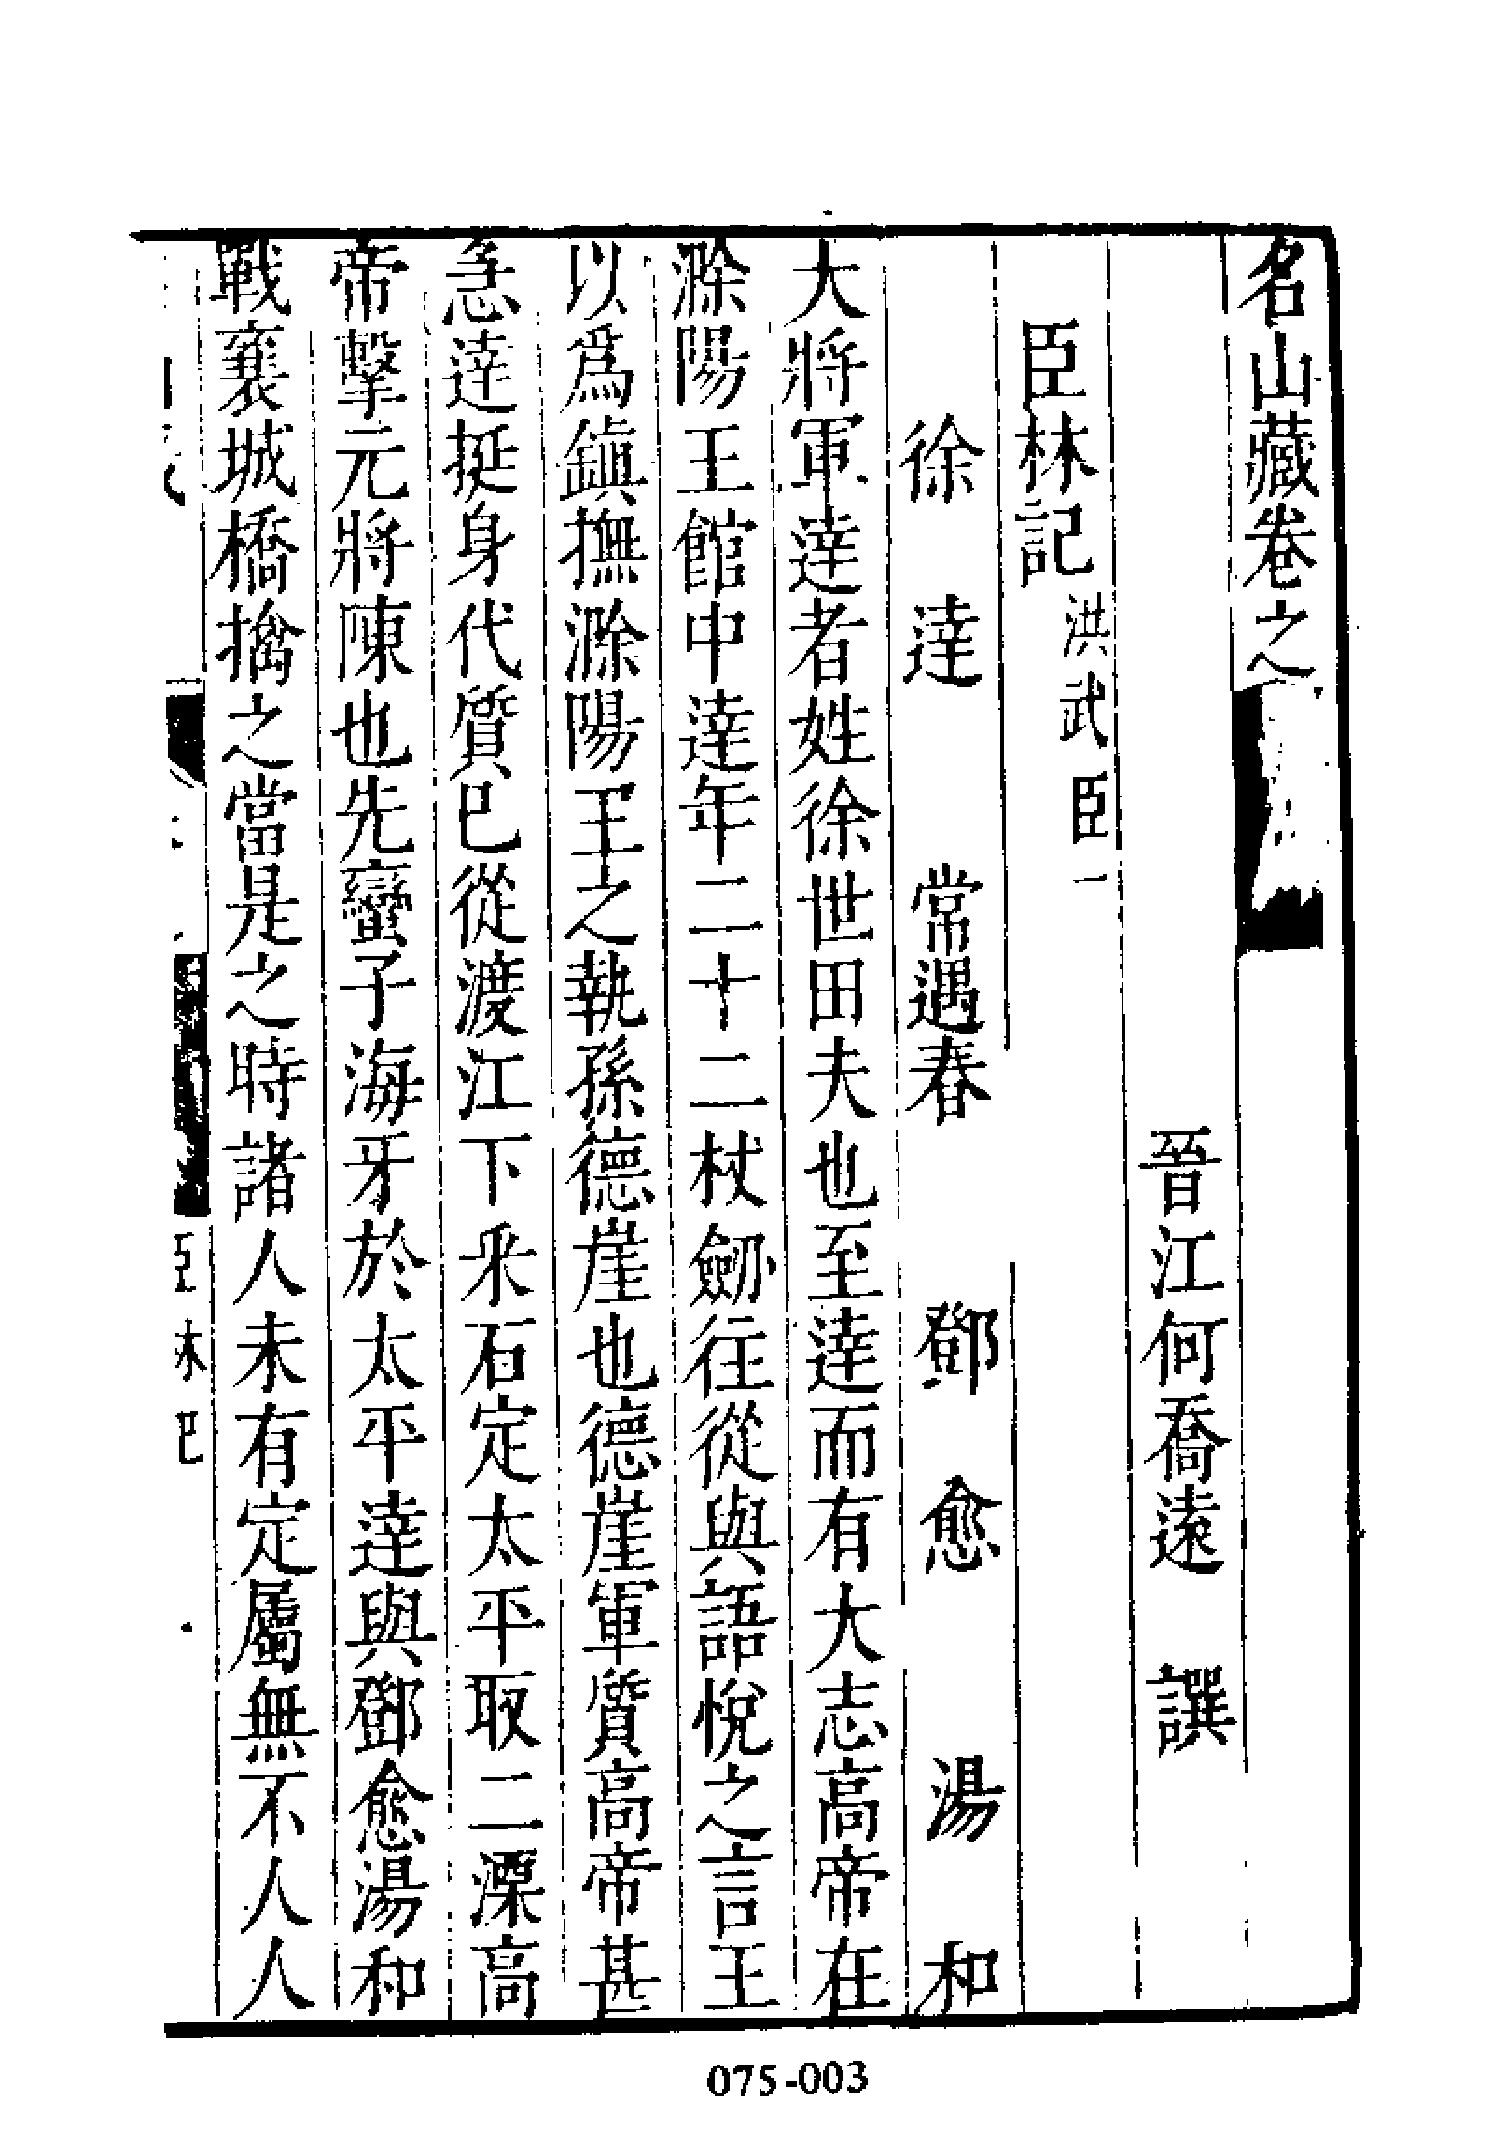 名山藏卷之
晉江何喬遠 譔
臣林記 洪武臣一
徐 達 常遇春 鄧 愈 湯 和
大將軍達者姓徐世田夫也至達而有大志高帝在
滁陽王館中達年二十二杖劒往從與語悅之言王
以爲鎮撫滁陽王之執孫德崖也德崖軍質高帝甚
急達挺身代質已從渡江下采石定太平取二溧高
帝擊元將陳也先蠻子海牙於太平達與鄧愈湯和
戰襄城橋擒之當是之時諸人未有定屬無不人人
臣林記
075-003